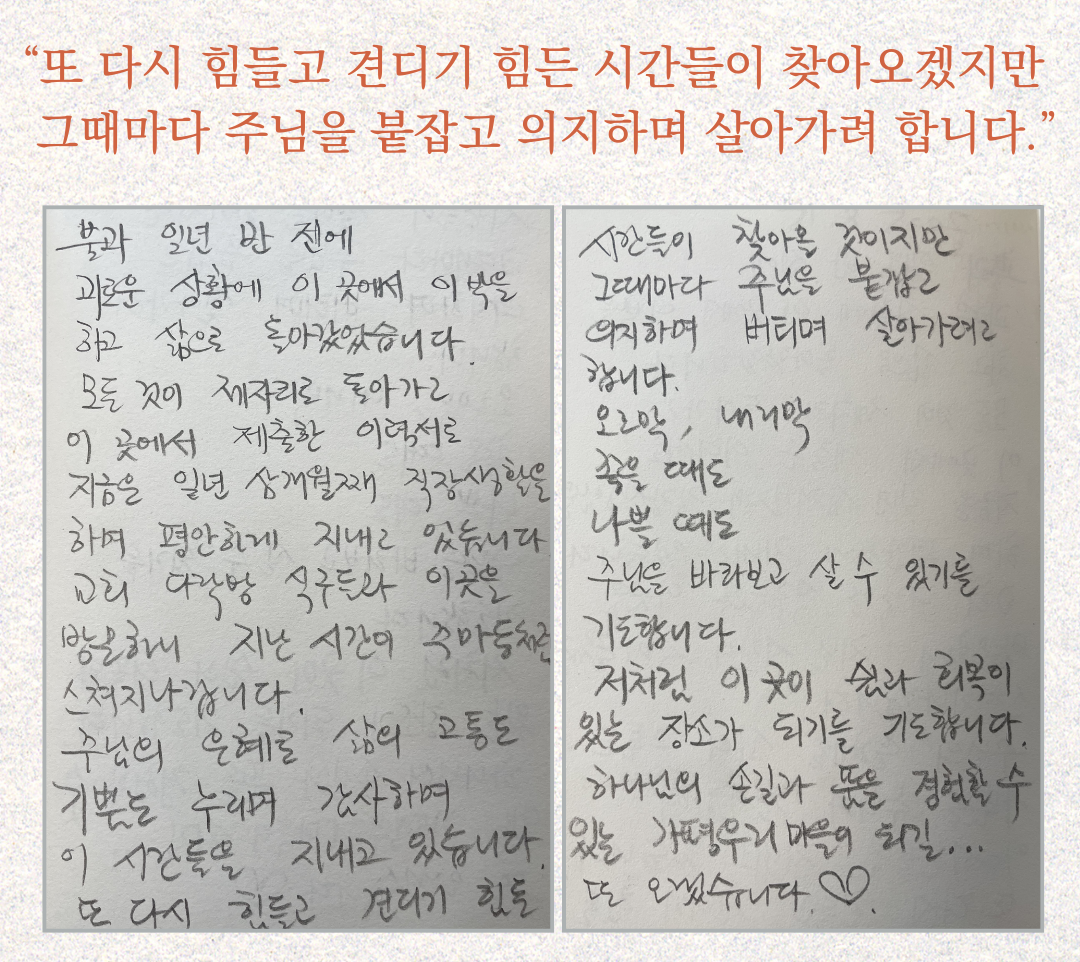 “또 다시 힘들고 견디기 힘든 시간들이 찾아오겠지만
그때마다 주님을 붙잡고 의지하며 살아가려 합니다.”
불과 일년 반 전에
괴로운 상황에 이 곳에서 이박을
하고 삶으로 돌아갔었습니다.
모든 것이 제자리로 돌아가고
이 곳에서 제출한 이력서로
지금은 일년 삼개월째 직장생활을
하며 평안하게 지내고 있습니다
교회 다락방 식구들과 이곳을
방문하니 지난 시간이 주마등처럼
스쳐지나갑니다.
주님의 은혜로 삶의 고통도
기쁨도 누리며 감사하며
이 시간들을 지내고 있습니다.
또 다시 힘들고 견디기 힘든
시간들이 찾아올 것이지만
그때마다 주님을 붙잡고
의지하며 버티며 살아가려고
합니다.
오르막, 내리막
좋을 때도
나쁠 때도
주님을 바라보고 살 수 있기를
기도합니다.
저처럼 이 곳이 쉼과 회복이
있는 장소가 되기를 기도합니다.
하나님의 손길과 뜻을 경험할 수
있는 가평우리마을이 되길...
또 오겠습니다. ♡.